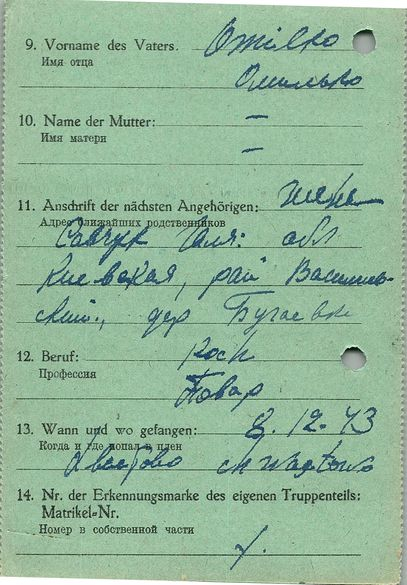 9. Vorname des Vaters. Omilko
Имя отца
Омилько
10. Name der Mutter: –
Имя матери
–
11. Anschrift der nächsten Angehörigen: жена
Адрес ближайших родственников
Савчук обл
Киевская, рай Василь-
ский., дер Бугаевка
12. Beruf: Koch
Профессия
Повар
13. Wann und wo gefangen: 8.12.43
Когда и где попал в плен
14. Nr. der Erkennungsmarke des eigenen Truppenteils:
Matrikel=Nr.
Номер в собственной части